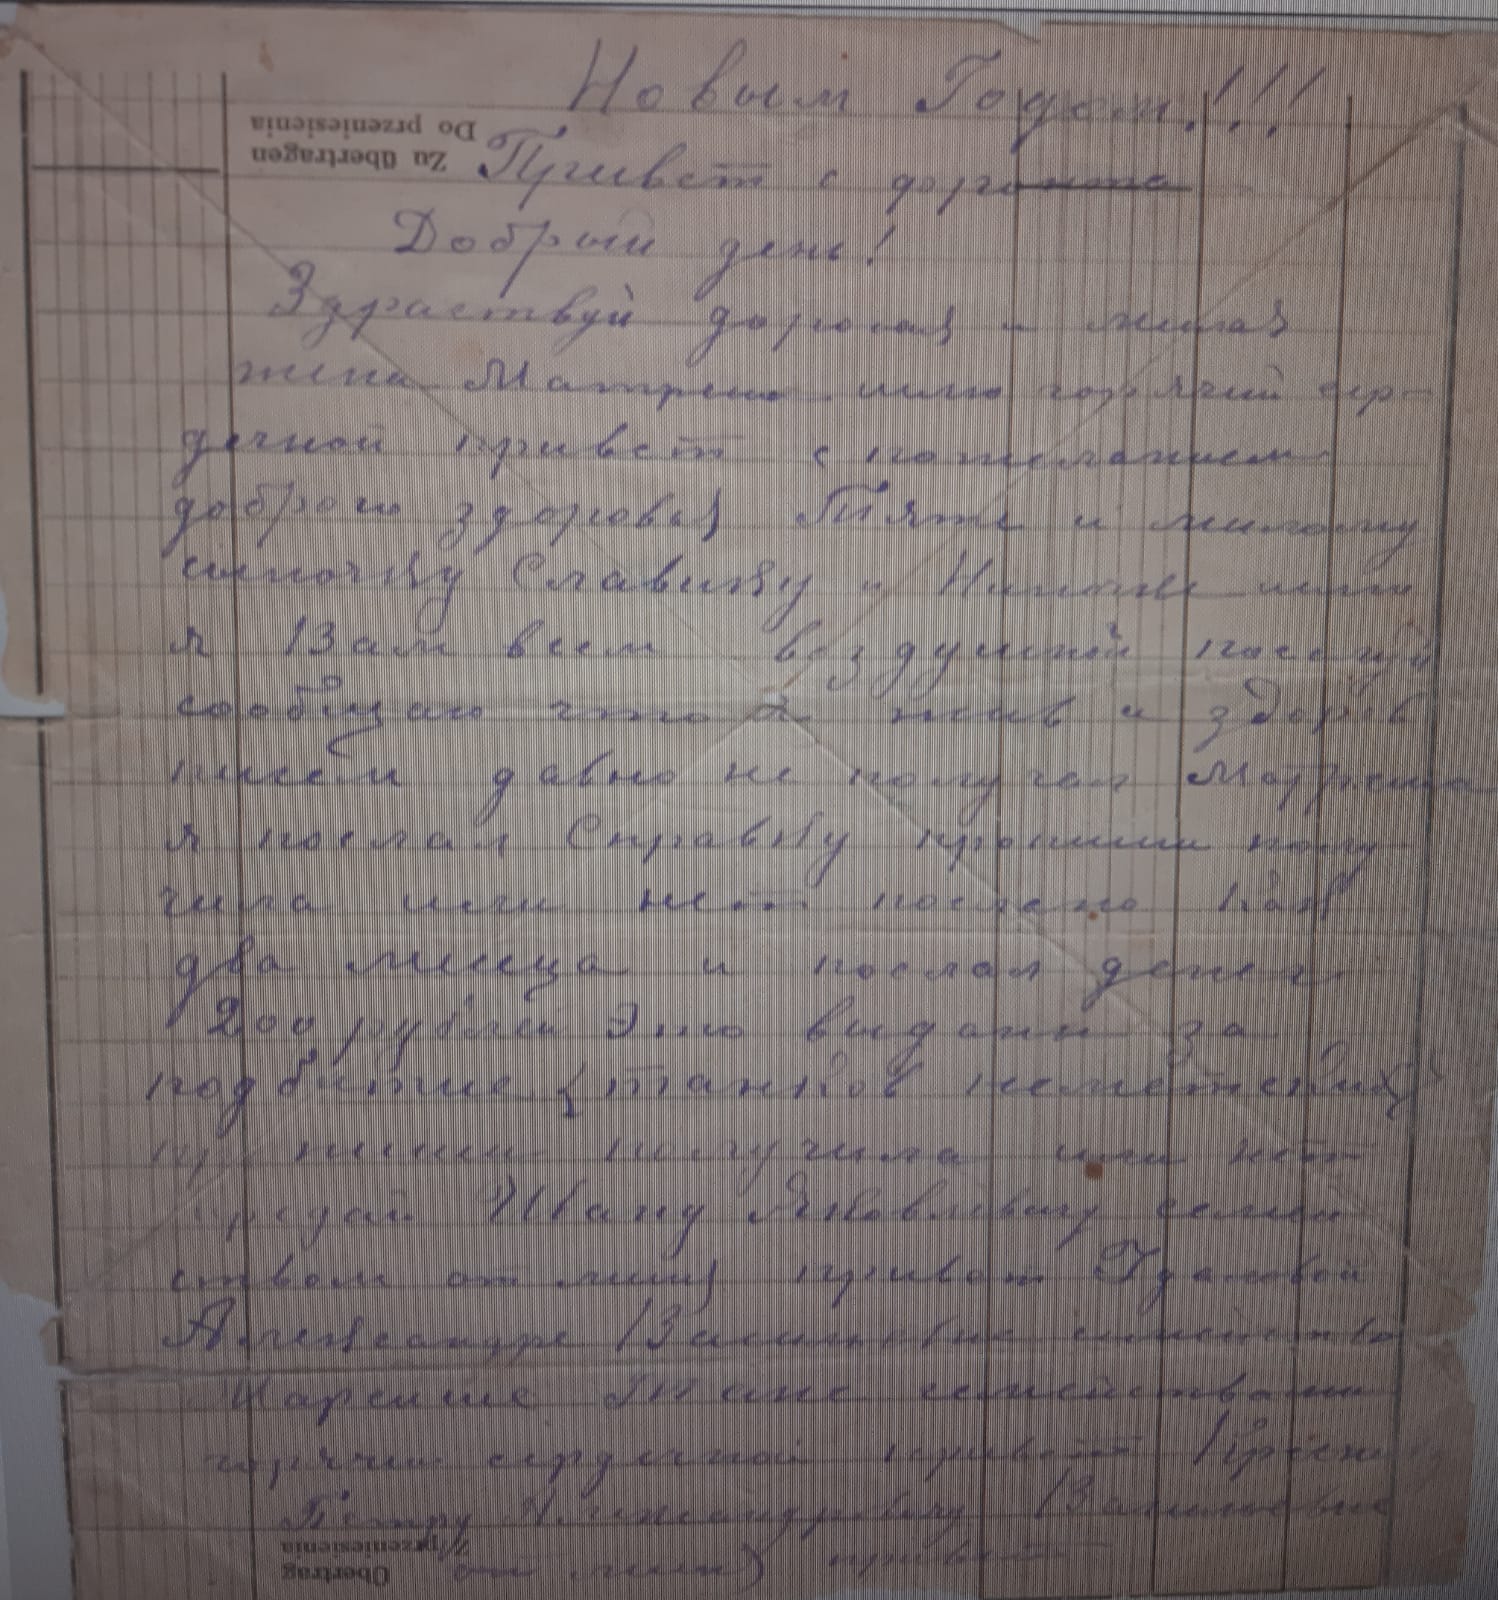 Новым Годом!!!
Do przeniesienia
Zu übertragen
Привет с
Добрый день!
Здраствуй дорогая и милая
жена Матреша шлю горячий сер-
дечной привет с пожеланием
доброго здоровья Тяте и милому
сыночку Славику и Нине шлю
я Вам всем воздушной поцелуй
сообщаю что я жив и здоров
писем давно не получал Матреша
я послал Справку пропиши полу
чила или нет послано как
два месеца и послал денег
200 рублей Это выдали за
подбитие танков неметских
пропиши получила или нет
предай Ивану Яковлевичу семей
ством от миня привет
Александре Васильевне семейство
Тане семейством
горячий сердечной привет
Петру Александровичу Васильевне
Übertrag
Z przeniesienia
от миня привет